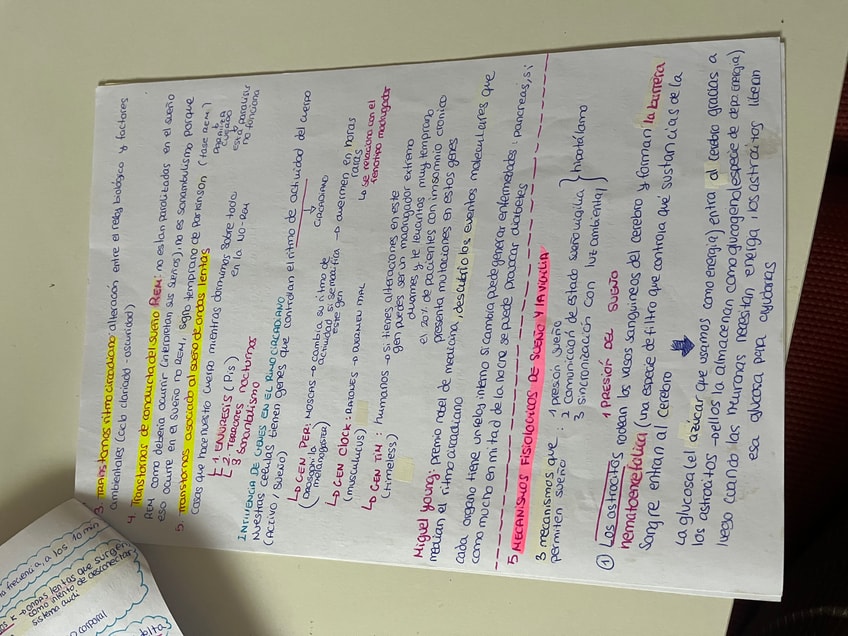 3. TRANStornos ritmo circadiano alteración entre el reloj biológico y factores
ambientales (ciclo claridad-oscuridad)
4 Transtornos de conducta del sueño REM: no estan paralizados en el sueño
REM como debería ocurrir (interpretan sus sueños), no es sonambulismo porque
eso ocurre en el sueño no REM, sino temprano de Parkinson (fase REM)
5. Transtornos asociado al sueño de ondas lentas
Cosas que hace nuestro cuerpo mientras dormimos sobre todo
en la NO-REM
paraliza
cuerpo
esta paralisis
no funciona
1 ENURESIS (Pis)
2 TERRORES nocturnos
3 Sonambulismo
INFLUENCIA DE GENES EN EL RITMO CIRCADIANO
Nuestras células tienen genes que controlan el ritmo de actividad del cuerpo
(ACTIVO / SUEÑO)
CIRCADIANO
GEN PER: MOSCAS → cambia su ritmo de
actividad si se modifica
este gen
→ duermen en horas
raras
(drosophila
melanogaster)
GEN CLOCK: RATONES → DUERMEN MAL
(musculucus)
GEN TIM: humanos → si tienes alteraciones en este
gen puedes ser un madrugador extremo
(timeless)
→ se relaciona con el
fenotipo madrugador
duermes y te levantas muy temprano
el 20% de pacientes con insomnio cronico
presenta mutaciones en estos genes
Miguel Young: premio nobel de medicina, descubrió los eventos moleculares que
median el ritmo circadiano
cada organo tiene un reloj interno si cambia puede generar enfermedades: páncreas, si
como mucho en mitad de la noche se puede provocar diabetes
5 MECANISMOS FISIOLOGICOS DE SUEÑO Y LA VIGILIA
3 mecanismos que
permiten sueño :
1 presión sueño
2 Comunicación de estado sueño vigilia
3 sincronización con luz ambiental
} hipotálamo
1 PRESIÓN DEL SUEÑO
① Los astrocitos rodean los vasos sanguineos del cerebro y forman la barrera
hematoencefalica (una especie de filtro que controla qué sustancias de la
sangre entran al cerebro
La glucosa (el azúcar que usamos como energía) entra al cerebro gracias a
los astrocitos → ellos la almacenan como glucogeno (especie de depo energía)
luego cuando las neuronas necesitan energía, los astrocitos liberan
esa glucosa para ayudarlas
frecuencia, a los 10 min
K → ONDAS lentas que surgen
como intento de desconectar
sistema audi
corporal